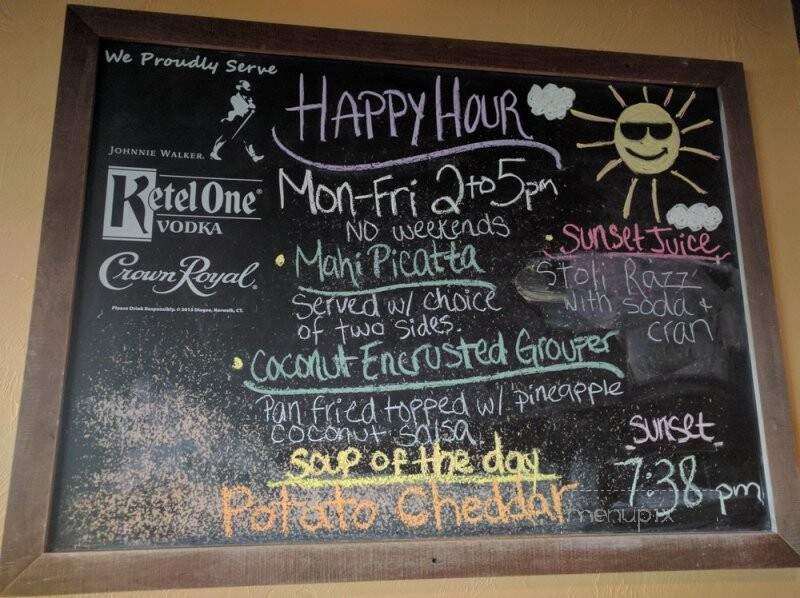 We Proudly Serve
JOHNNIE WALKER.
Ketel One®
VODKA
Crown Royal.
Please Drink Responsibly. © 2013 Diageo, Norwalk, CT.
HAPPY HOUR
Mon-Fri 2 to 5pm
NO weekends
• Mahi Picatta
Served w/ choice
of two sides.
• Coconut Encrusted Grouper
Pan fried topped w/ pineapple
coconut salsa
soup of the day
Potato Cheddar
• Sunset Juice
Stoli Razz
with soda +
cran
sunset
7:38 pm
menupix